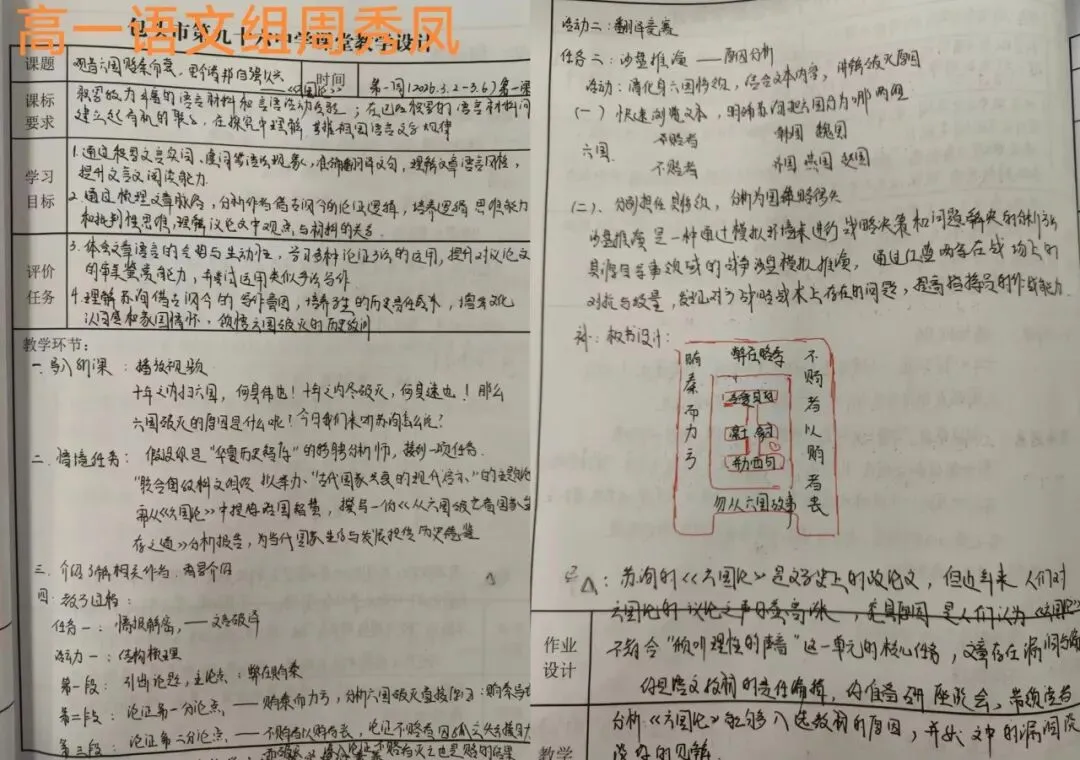 高一语文组周秀凤
包头市第九十六中学课堂教学设计
课题
观古六国赂秦而蒙,思今万邦自强以兴
《六国论》
时间
第一周(2026.3.2-3.6)第一课
课标
要求
积累较为丰富的语言材料和言语活动经验;在已经积累的语言材料间
建立起有机的联系,在探究中理解、掌握祖国语言文字规律
学习
目标
1.通过积累文言实词、虚词等语法现象,准确翻译文句,理解文章语言风格,
提升文言文阅读能力.
2.通过梳理文章脉络,分析作者借古讽今的论证逻辑,培养逻辑思维能力
和批判性思维,理解议论文中观点与材料的关系.
评价
任务
3.体会文章语言的 与生动性,学习多种论证方法的运用,提升对议论文
的审美鉴赏能力,并尝试运用类似手法写作
4.理解苏洵借古讽今的写作意图,培养学生的历史责任感,增强文化
认同感和家国情怀,领悟六国破灭的历史教训
教学环节:
一.导入新课:播放视频
十年之内扫六国,何其伟也!十年之内尽破灭,何其速也!那么
六国破灭的原因是什么呢?今日我们来听苏洵怎么说?
二.情境任务:假设你是"华夏历史智库"的特聘分析师,接到一项任务.
"联合国教科文组织拟举办'当代国家兴衰的现代启示'"的主题论
需从《六国论》中提炼强国智慧,撰写一份《从六国破亡看国家生
存之道》分析报告,为当代国家生存与发展提供历史借鉴
三.介绍了解相关作者、背景介绍
四.教学过程:
任务一:情报解密,——文言破译
活动一:结构梳理
第一段:引出论题,主论点:弊在赂秦
第二段:论证第一分论点,——赂秦而力亏,分析六国破灭直接原因:赂秦
第三段:论证第二分论点,——不赂者以赂者丧,论证不赂者因 失去强援
活动二:翻译竞赛
任务二:沙盘推演——原因分析
活动:请化身六国谋臣,结合文本内容,讲解破灭原因
(一)快速浏览文本,明确苏洵把六国分为哪两组
六国
赂者 韩国 魏国
不赂者 齐国 燕国 赵国
(二)、分别担任谋臣,分析为国策略得失
沙盘推演是一种通过模拟环境来进行战略决策和问题解决的分析方法
其源自军事领域的战争沙盘模拟推演,通过红蓝两军在战场上的
对抗与较量,发现对方战略战术上存在的问题,提高指挥员的作战能力.
补:板书设计:
赂秦而力亏
弊在赂秦
勿从六国故事
不赂者以赂者丧
作业
设计
苏洵的《六国论》是文学史上的政论文,但近年来人们对
六国论的议论之声日益高涨,究其原因是人们认为《六国论》
不符合"倾听理性的声音"这一单元的核心任务,文章存在漏洞
你是语文教材的责任编辑,
分析《六国论》能够入选教材的原因,并就文中的漏洞谈
谈你的见解.
教学